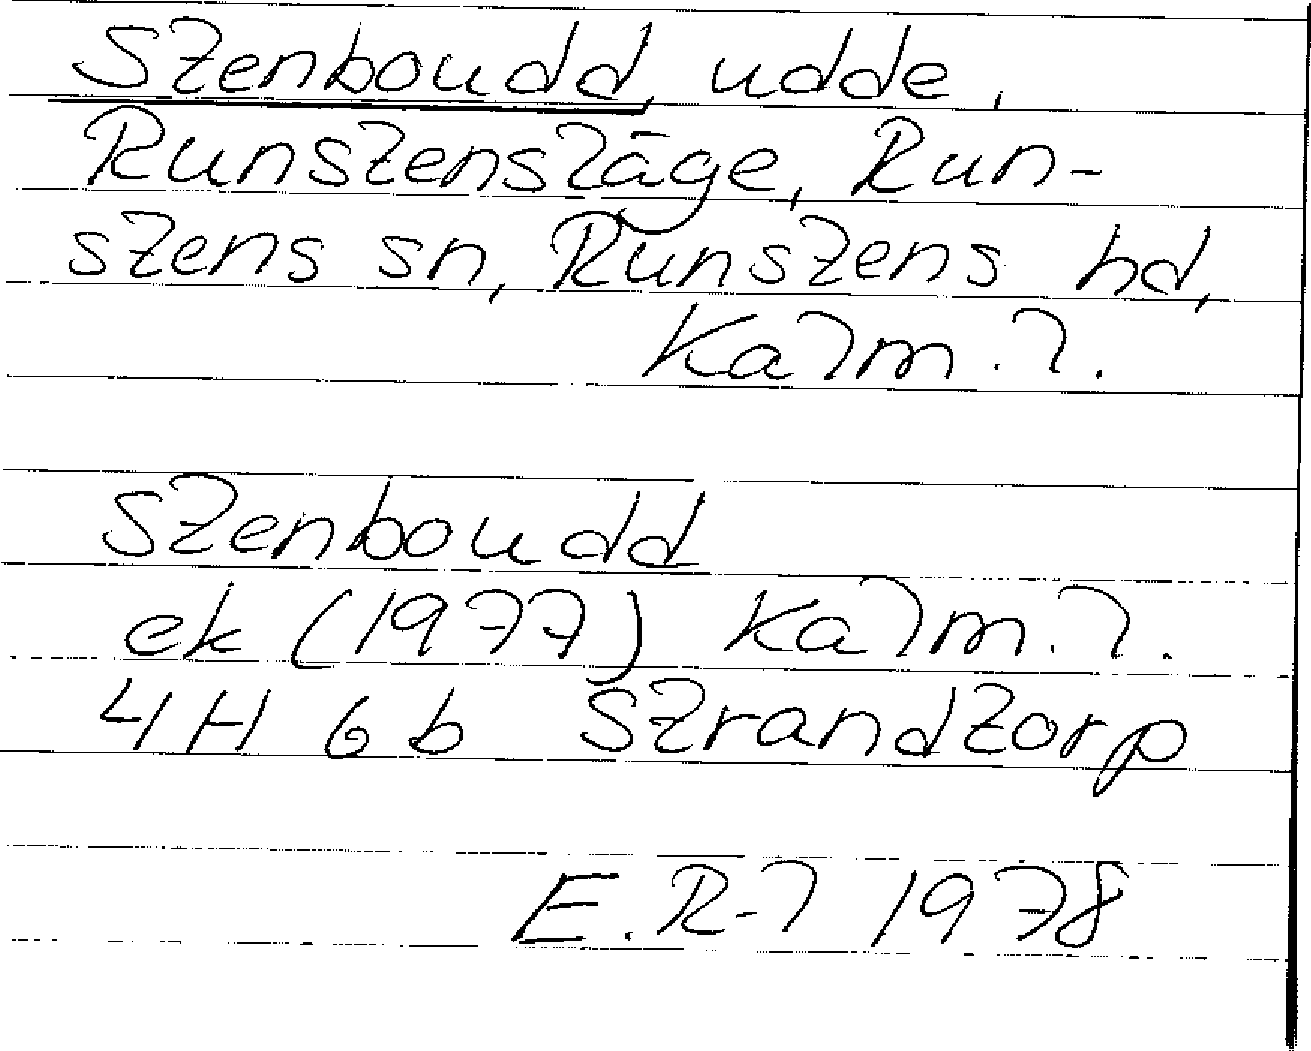 Stenboudd, udde,
Runstensläge, Run-
stens sn, Runstens hd,
Kalm. l.
Stenboudd
ek (1977) Kalm. l.
4H 6b Strandtorp
E. R-l 1978